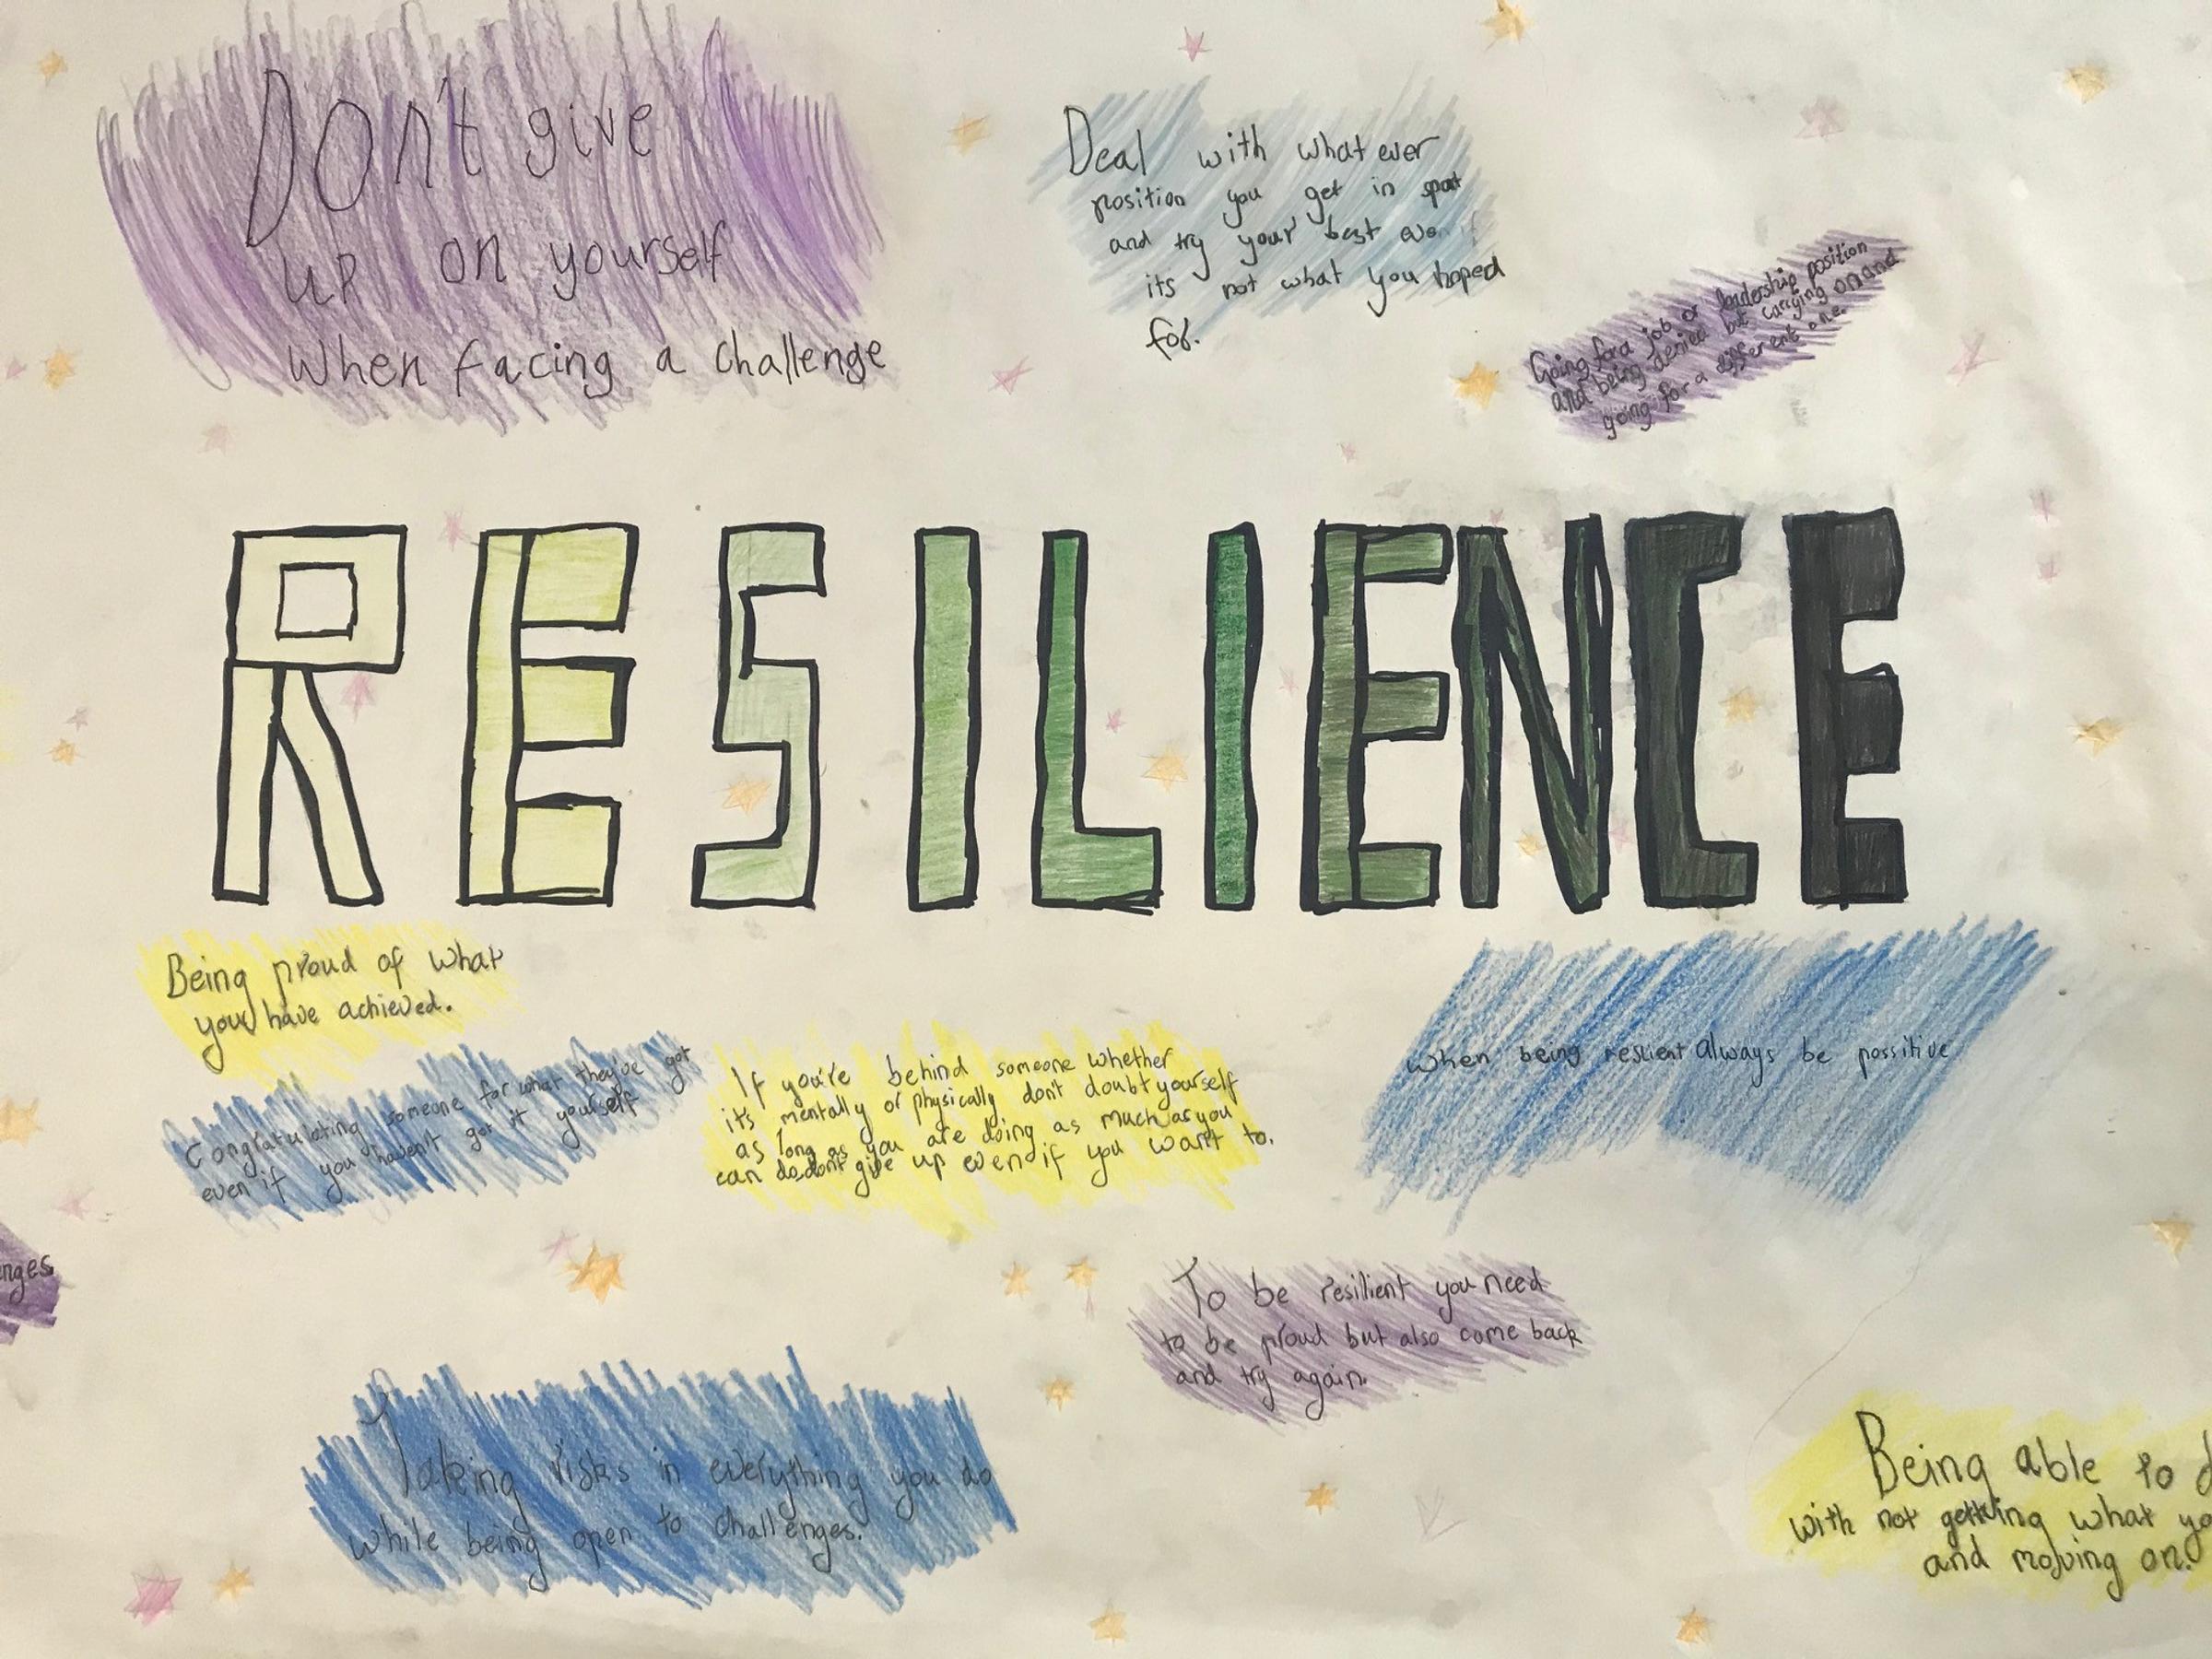 Don't give
up on yourself
when facing a challenge
Deal with what ever
position you get in sport
and try your best even if
its not what you hoped
for.
Going for a job or leadership position
and being denied but carrying on and
going for a different one.
RESILIENCE
Being proud of what
you have achieved.
Congratulating someone for what they've got
even if you haven't got it yourself
If you're behind someone whether
it's mentally or physically don't doubt yourself
as long as you are doing as much as you
can do, don't give up even if you want to.
when being reslient always be possitive
nges
To be resilient you need
to be proud but also come back
and try again.
Taking risks in everything you do
while being open to challenges.
Being able to d
with not getting what yo
and moving on.